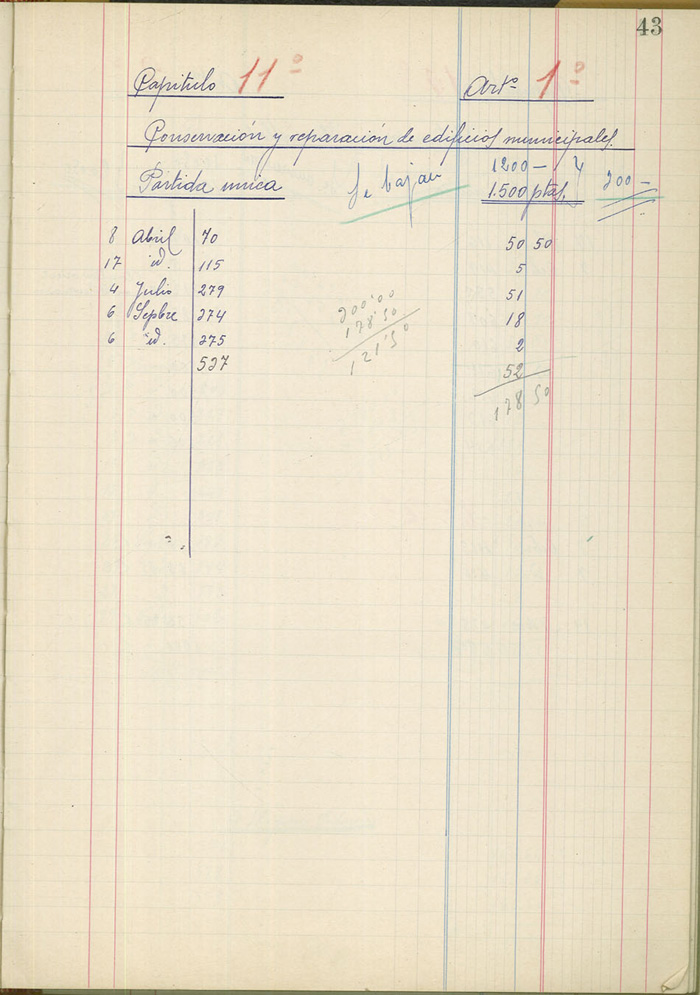 43
Capitulo 11º Artº 1º
Conservación y reparación de edificios municipales.
1200 —
Partida unica Se bajan 1.500 ptas. 300 —
8 Abril 70 50 50
17 id. 115 5
4 Julio 279 51
6 Sepbre 274 18
6 id. 275 2
527 52
178 50
300'00
178'50
121'50